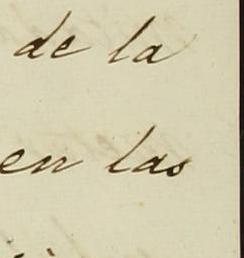 de la
en las